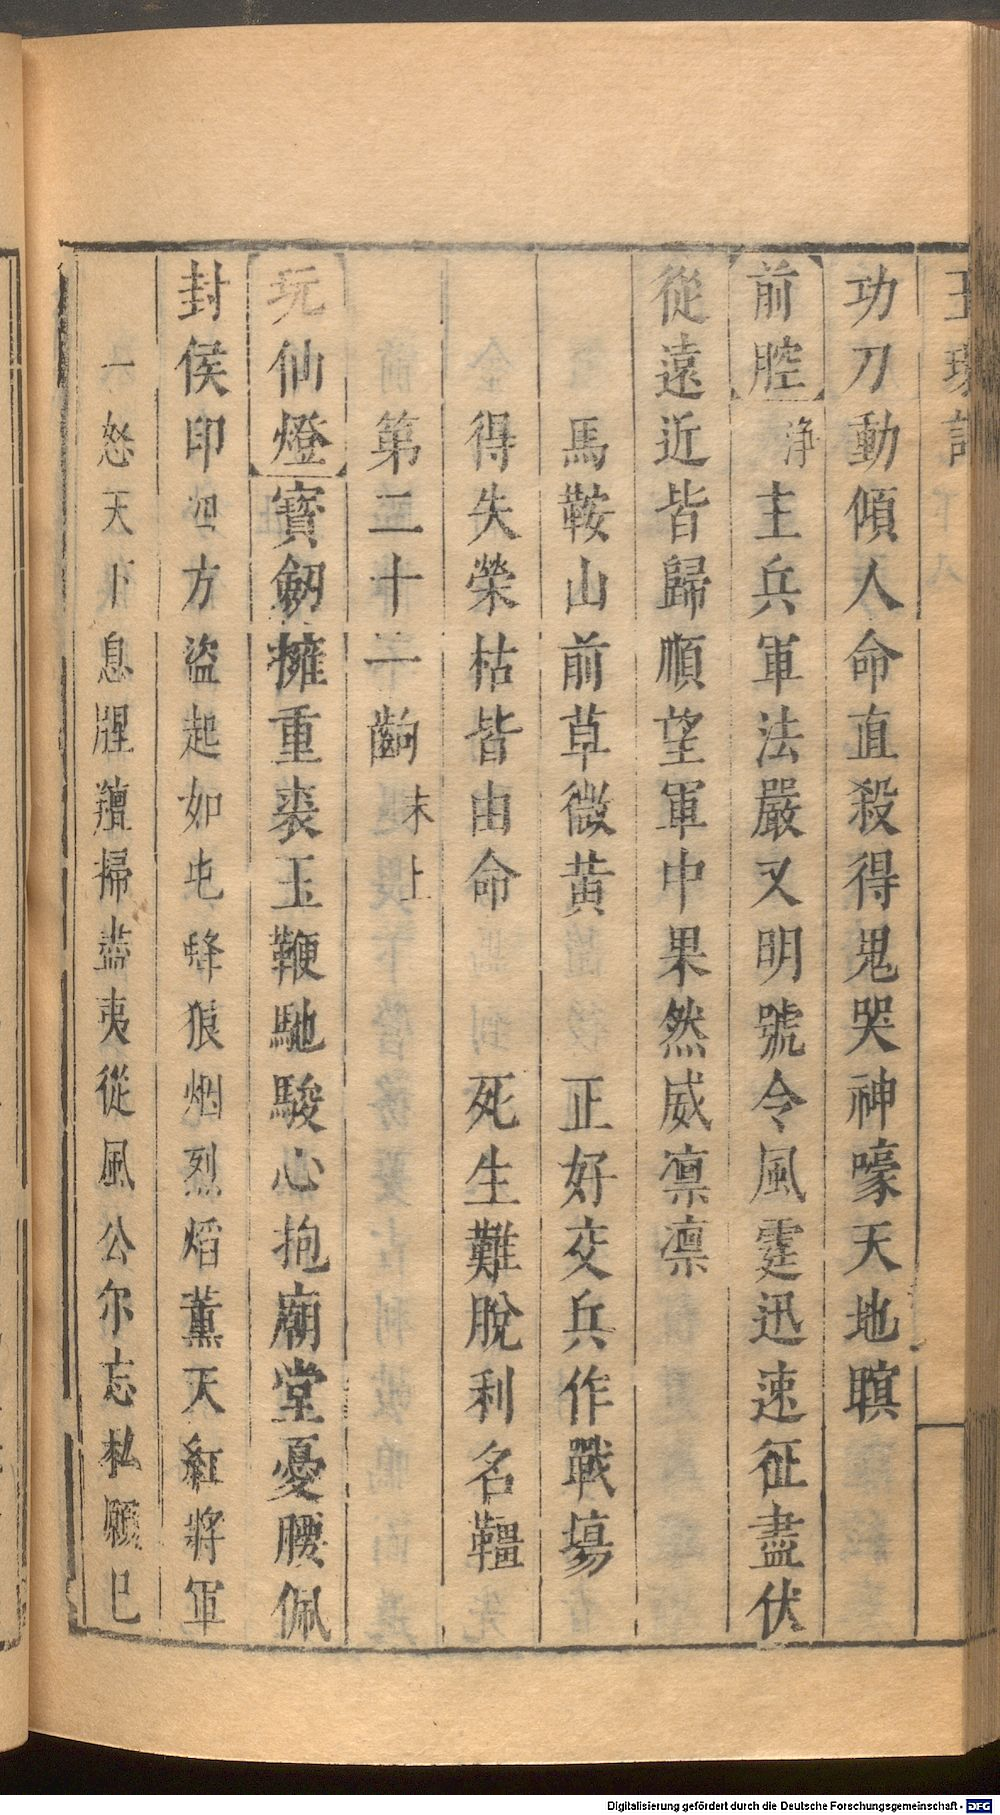 玉環記
功刀動傾人命直殺得鬼哭神嚎天地瞑
前腔 淨 主兵軍法嚴又明號令風霆迅速征盡伏
從遠近皆歸順望軍中果然威凛凛
馬鞍山前草微黃 正好交兵作戰塲
得失榮枯皆由命 死生難脫利名韁
第二十二齣 末上
玩仙燈 寳劒擁重裘玉鞭馳駿心抱廟堂憂腰佩
封侯印四方盜起如屯蜂狼烟烈熖薰天紅將軍
一怒天下息腥羶掃盡夷從風公尔忘私願已
Digitalisierung gefördert durch die Deutsche Forschungsgemeinschaft - DFG